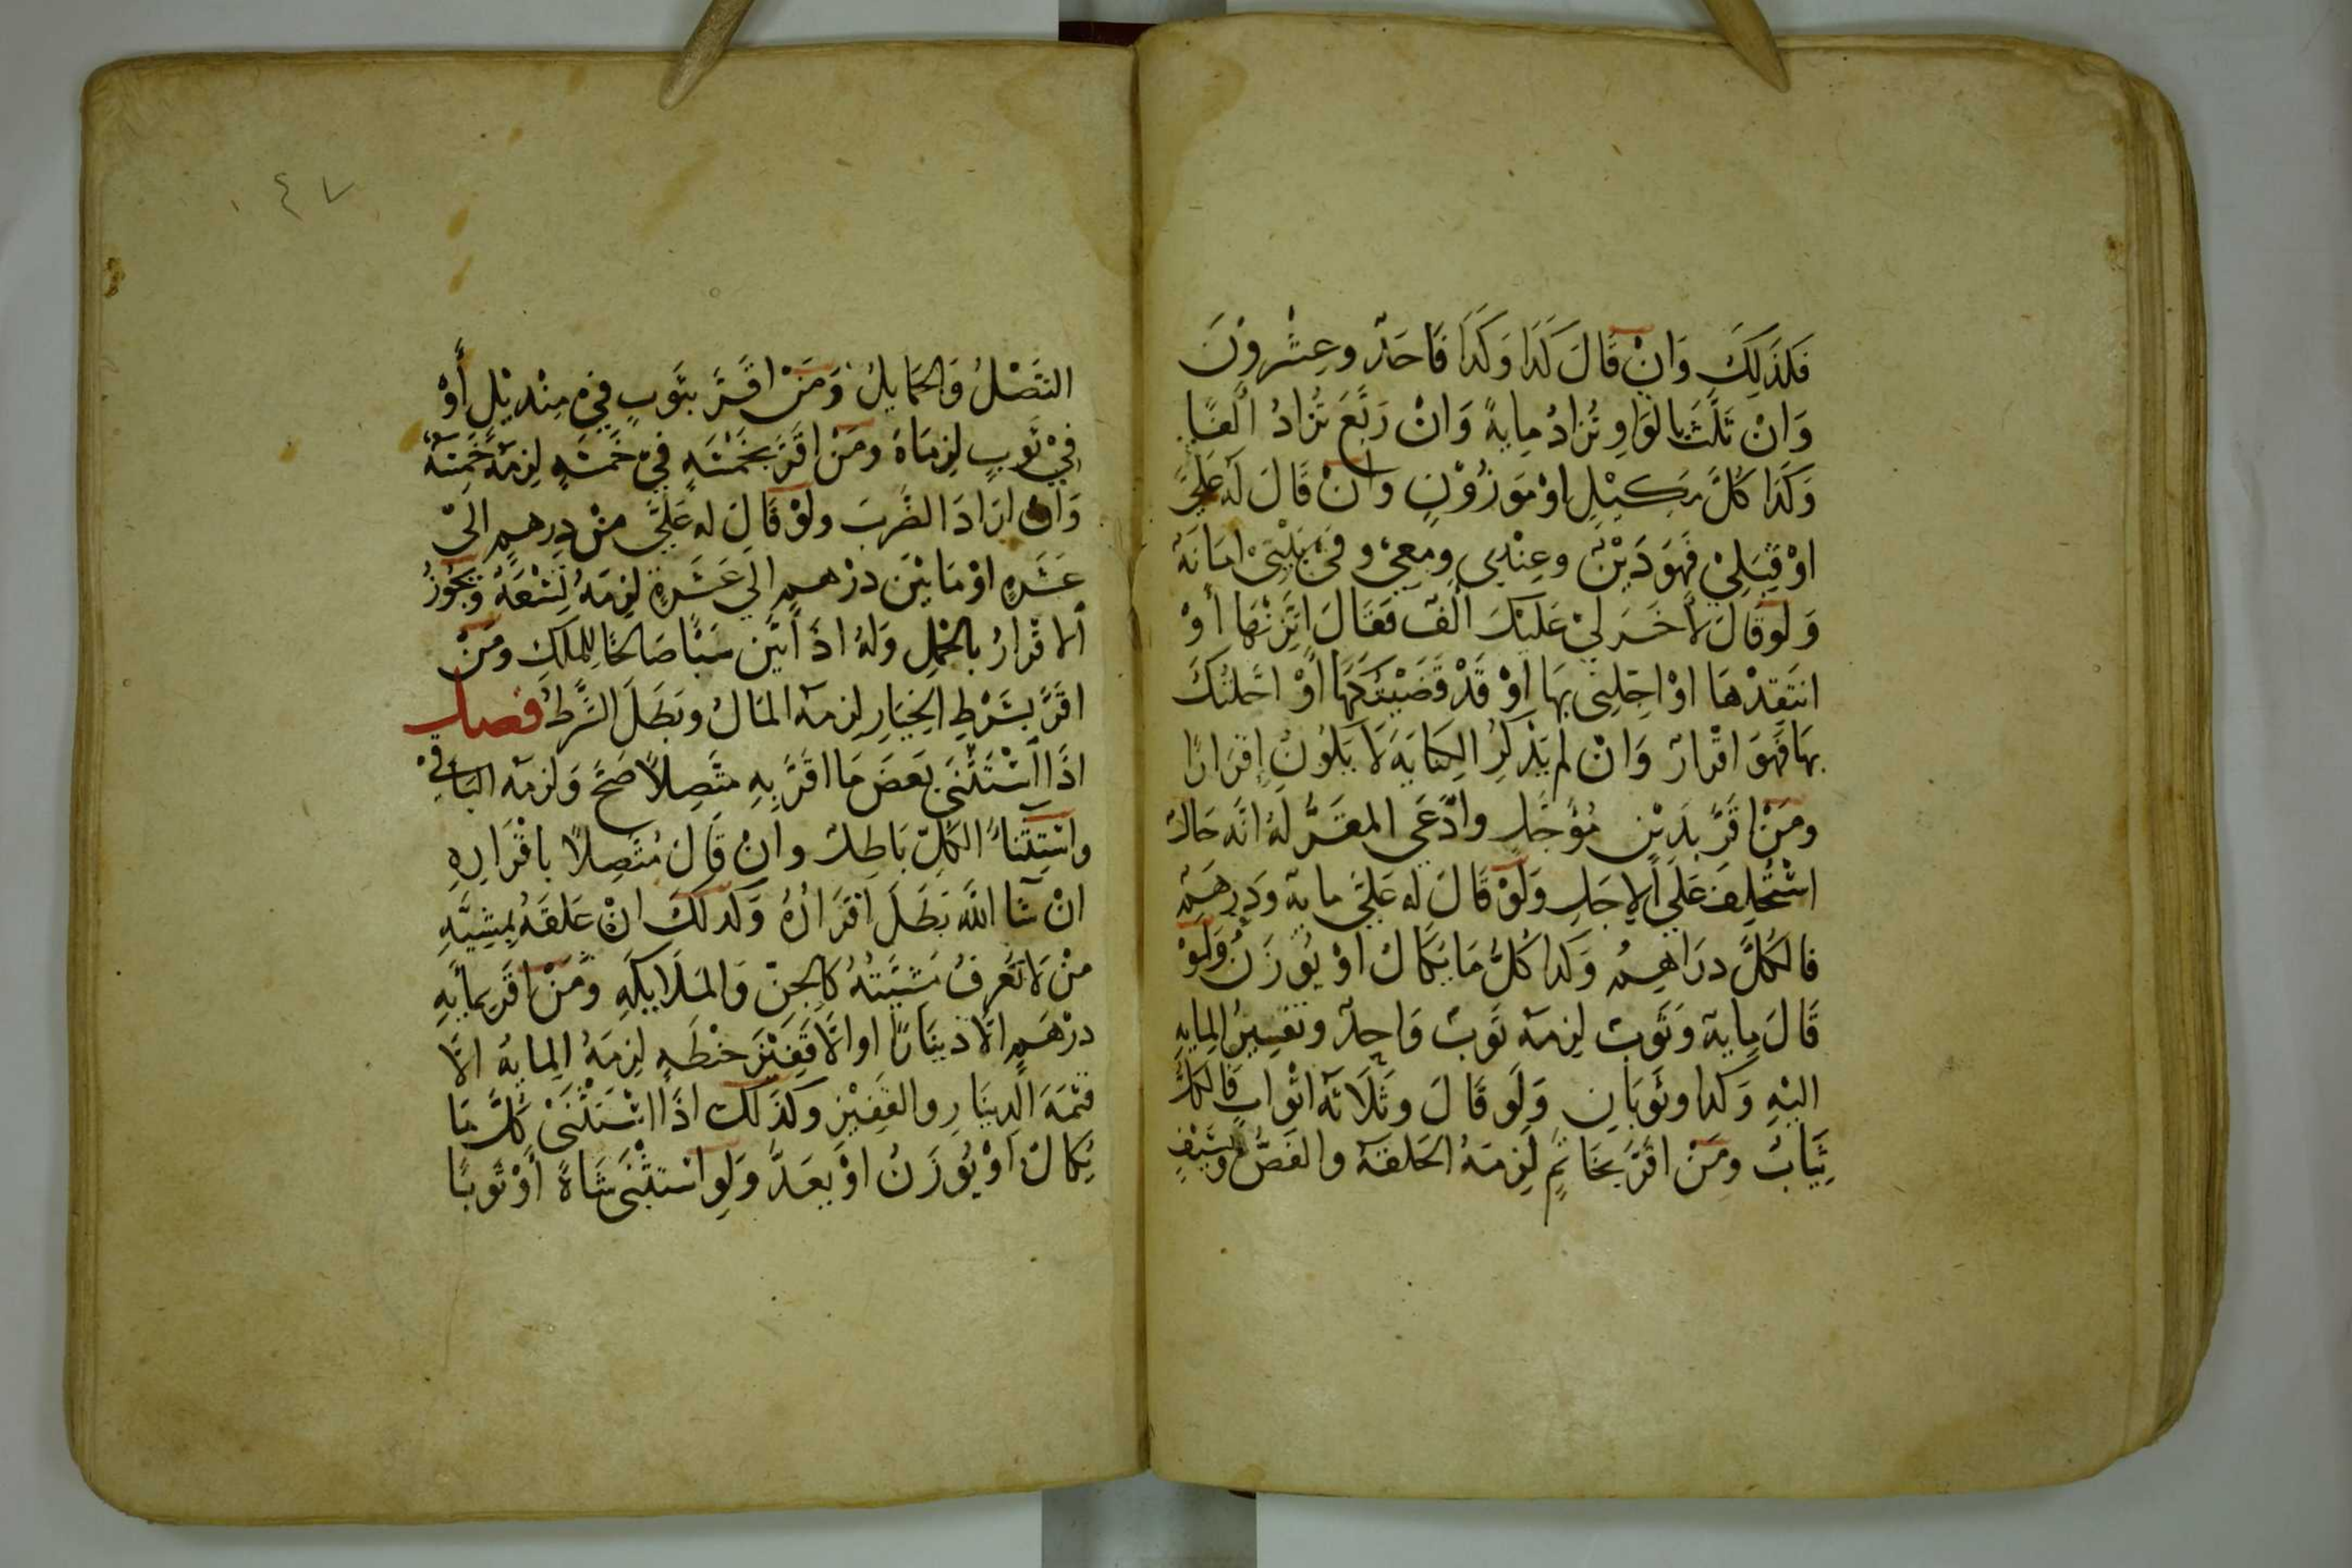 فَكَذَلِكَ وَانْ قَالَ كَذَا وَكَذَا فَاحَدٌ وعِشْرونَ
وَانْ ثَلَّثَ بالوَاوِ تُزادُ مِايةً وَانْ رَبَّعَ تُزادُ الْفًا
وَكَذَا كُلُّ مَكيْلٍ اوْ مَوزُوْنٍ وانْ قَالَ لَه عَلَيَّ
اوْ قِبَلِيْ فَهوَ دَيْنٌ وعِنْدِي ومعِيْ وفي بَيْتِيْ امَانَة
وَلَو قَالَ لاٰخَرَ لِيْ عَليْكَ الْفٌ فقَالَ اتَّزِنْهَا أوْ
انتَقِدْهَا اوْ اجّلنِي بهَا اوْ قَدْ قَضَيْتُكَهَا اوْ احَلتُكَ
بهَا فَهوَ اقْرارٌ وَانْ لم يَذكُرِ الكِنَايَةَ لَا يَكُونُ إِقرَارًا
ومَنْ اقَرَّ بدَيْنٍ مُؤَجَّلٍ وادَّعَى المقَرُّ لهُ انَّه حَالٌّ
اسْتُحْلِفَ عَلَي الاجَلِ وَلَوْ قَالَ له عَليَّ ماية وَدِرهَمٌ
فالكُلُّ درَاهِمُ وَكذا كُلُّ مَا يُكَالُ اوْ يُوزَنُ وَلَوْ
قَالَ مِاية وَثَوبٌ لزِمَهُ ثَوبٌ وَاحِدٌ وتفسِيرُ المِايةِ
اليْهِ وَكذا وثَوبَانِ وَلَو قَالَ وثَلَاثَة اثْوابٍ فَالكلُّ
ثِيَابٌ ومَنْ اقَرَّ بخَاتمٍ لَزِمَهُ الحَلقَة والفَصُّ وبسَيْفٍ
٤٧
النَّصْلُ وَالحمَايلُ وَمَنْ اقَرَّ بثَوبٍ فِي مِنْدِيْلٍ أَوْ
فِيْ ثَوبٍ لزِمَاهُ ومَنْ اقَرَّ بخَمْسَةٍ فِيْ خَمسَةٍ لزِمَهُ خَمسَة
وَانْ ارَادَ الضَّربَ ولَوْ قَالَ له عَلَيَّ مِنْ دِرهمٍ الَيْ
عَشَرةٍ اوْ مَا بَيْنَ درْهمٍ الَي عَشَرةٍ لَزِمَهُ تِسْعَةٌ وَيجُوْزُ
الاقْرارُ بالحَمْلِ وَلهُ اذَا بَيَّن سَبَبًا صَالحًا لِلملكِ ومَنْ
اقَرَّ بشَرْطِ الخِيَارِ لزِمَهُ المَالُ وبَطَلَ الشَّرطُ فصل
اذَا اسْتَثْنَي بَعضَ مَا اقَرَّ بهِ متَّصِلاً صَحَّ وَلزمَه البَاقِيْ
واسْتِثنَاءُ الكُلِّ بَاطِلٌ وانْ قَالَ مُتَّصِلاً باقْرَارِهِ
انْ شَا اللّه بَطَلَ اقرَارُهُ وَكذلكَ انْ عَلقَهُ بمشِيَّةِ
مَنْ لَا تعْرَفُ مَشيَّتهُ كَالجِنِّ وَالمَلَايكَهِ ومَنْ اقَرَّ بمايةِ
درْهَمٍ الَّا دينَارًا او الَّا قَفِيْزَ حنْطَهٍ لزِمَهُ المِايةُ الَّا
قيْمَةَ الدِينَارِ والقَفِيْزِ وكذَلكَ اذَا اسْتَثْنَيْ كُلَّ مَا
يُكَالُ اوْ يُوزَنُ اوْ يعَدُّ وَلوِ استثْنَي شَاةً أوْ ثَوبًا